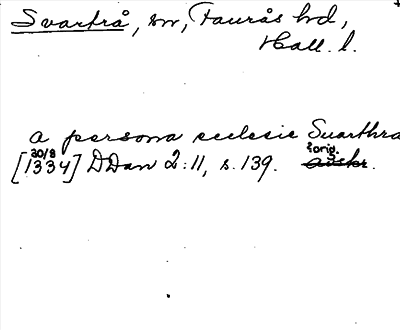 Svartrå, sn, Faurås hd,
Hall. l.
a persona ecclesie Suarthra
30/8
[1334] DDan 2:11, s. 139. orig.